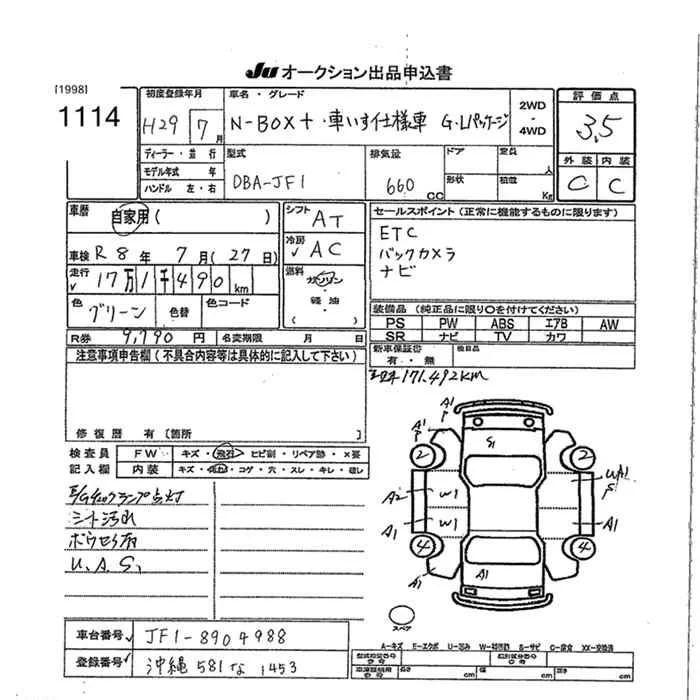 JU オークション出品申込書
[1998]
1114
初度登録年月
H29 7月
車名・グレード
N-BOX+・車いす仕様車 G・Lパッケージ
2WD
・
4WD
評価点
3.5
ディーラー・並行
モデル年式 年
ハンドル 左・右
型式
DBA-JF1
排気量
660 CC
ドア
形状
定員 人
積載 Kg
外装 内装
C C
車歴
自家用( )
シフト
AT
車検 R8年 7月(27日)
冷房
AC
走行 17万1千490km
燃料
ガソリン
・
軽油
色 グリーン 色替 色コード
セールスポイント(正常に機能するものに限ります)
ETC
バックカメラ
ナビ
装備品(純正品に限り○を付けてください)
PS PW ABS エアB AW
SR ナビ TV カワ
R券 9,790円 名変期限 月 日
新車保証書
有・無
検目品
171.492KM
注意事項申告欄(不具合内容等は具体的に記入して下さい)
修復歴 有〔箇所 〕
検査員 FW キズ・飛石・ヒビ割・リペア跡・X要
記入欄 内装 キズ・汚れ・コゲ・穴・スレ・キレ・破レ
E/Gチェックランプ点灯
シート汚れ
U、A、S、
A1
P
2
S1
2
A2
W1
UA1
P
A1
W1
A1
4
4
A1
A1
スペア
車台番号 JF1-8904988
登録番号 沖縄 581 な 1453
A-キズ E-エクボ U-凹み W-補修跡 S-サビ C-腐食 XX-交換済
長さ cm 幅 cm 高さ cm